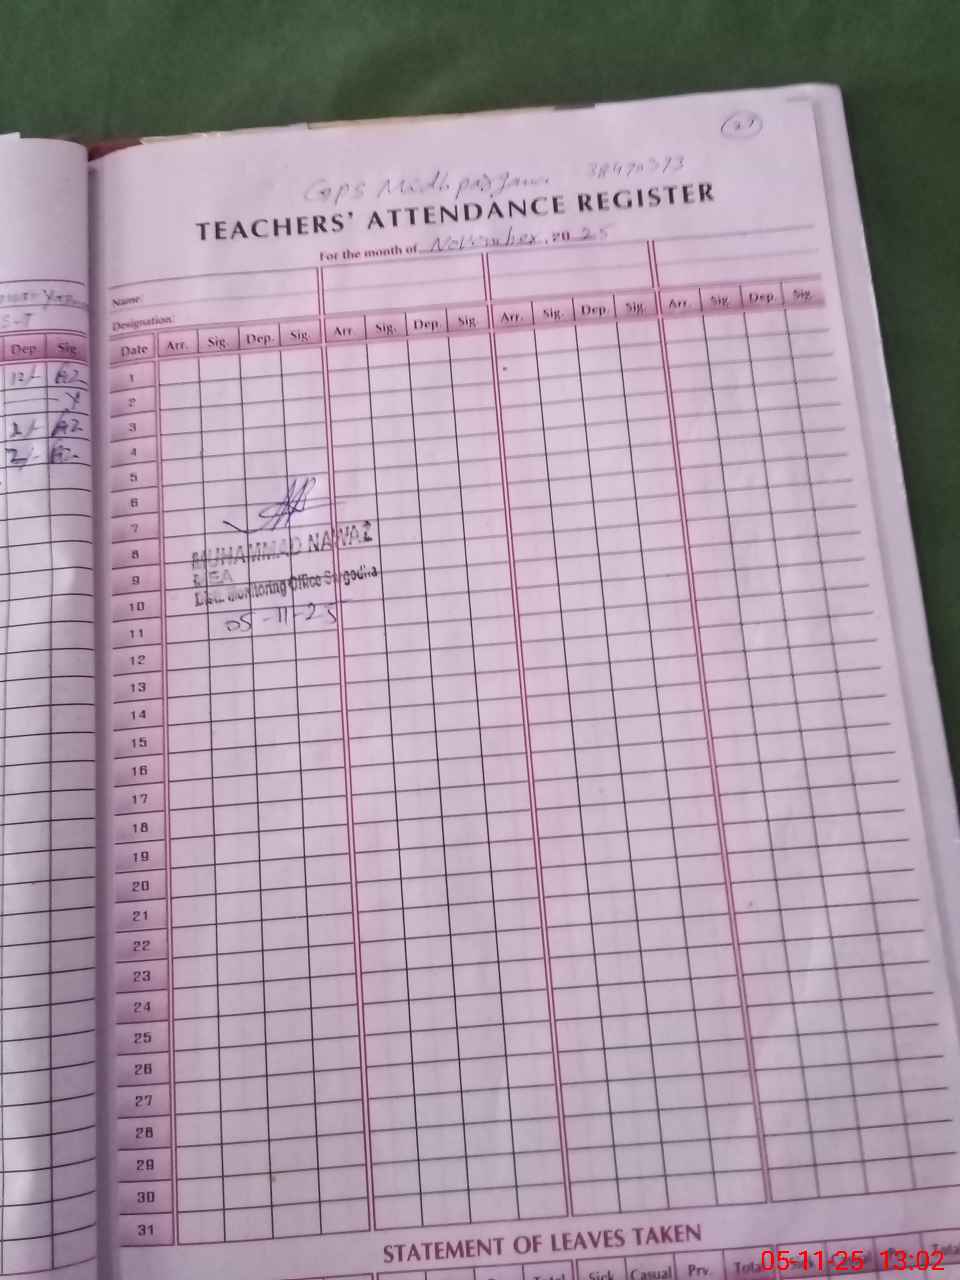 GPS
38470373
TEACHERS' ATTENDANCE REGISTER
For the month of November, 2025
Name:
Designation:
Dep. Sig.
Date Arr. Sig. Dep. Sig. Arr. Sig. Dep. Sig. Arr. Sig. Dep. Sig. Arr. Sig. Dep. Sig.
12/- AZ
2/- AZ
1
2
3
4
5
6
7
8
9
10
11
12
13
14
15
16
17
18
19
20
21
22
23
24
25
26
27
28
29
30
31
MUHAMMAD NAWAZ
MEA
Distt. Monitoring Office Sargodha
05-11-25
STATEMENT OF LEAVES TAKEN
Total Sick Casual Prv. Total
05-11-25 13:02